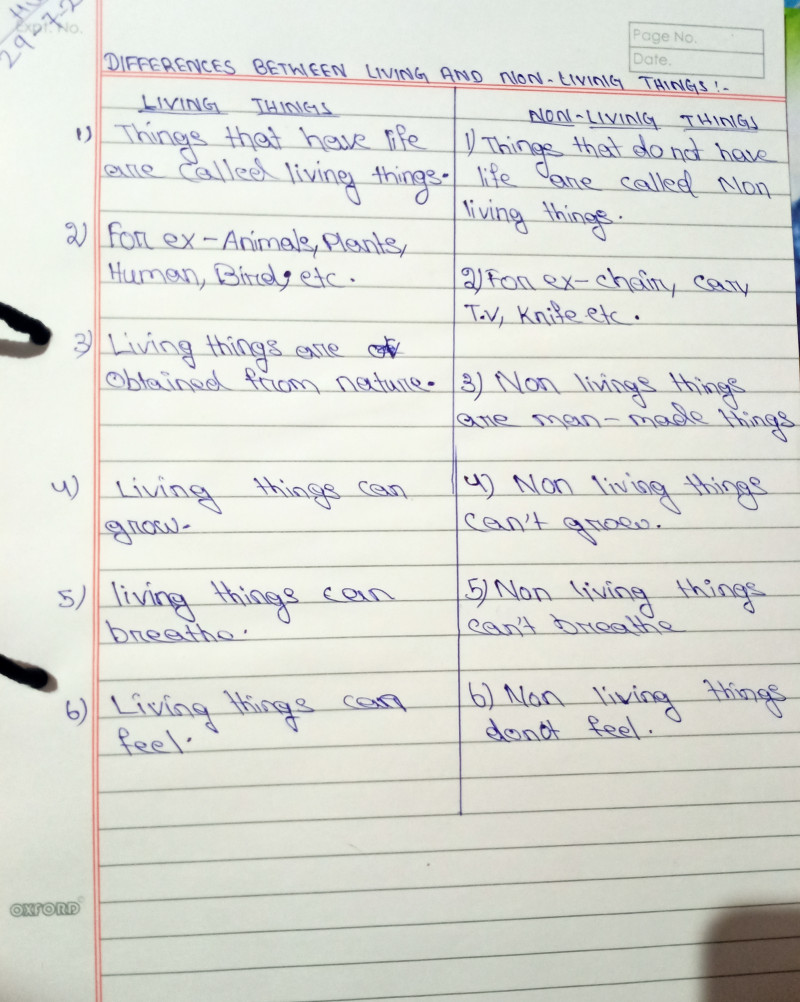 Expt. No.
29-7-2
Page No.
Date.
DIFFERENCES BETWEEN LIVING AND NON-LIVING THINGS:-
LIVING THINGS
1) Things that have life
are called living things.
2) For ex-Animals, Plants,
Human, Bird, etc.
3) Living things are
obtained from nature.
4) Living things can
grow.
5) living things can
breathe.
6) Living things can
feel.
NON-LIVING THINGS
1) Things that do not have
life are called Non
living things.
2) For ex-chair, car,
T.V, Knife etc.
3) Non livings things
are man-made things
4) Non living things
can't grow.
5) Non living things
can't breathe
6) Non living things
donot feel.
OXFORD